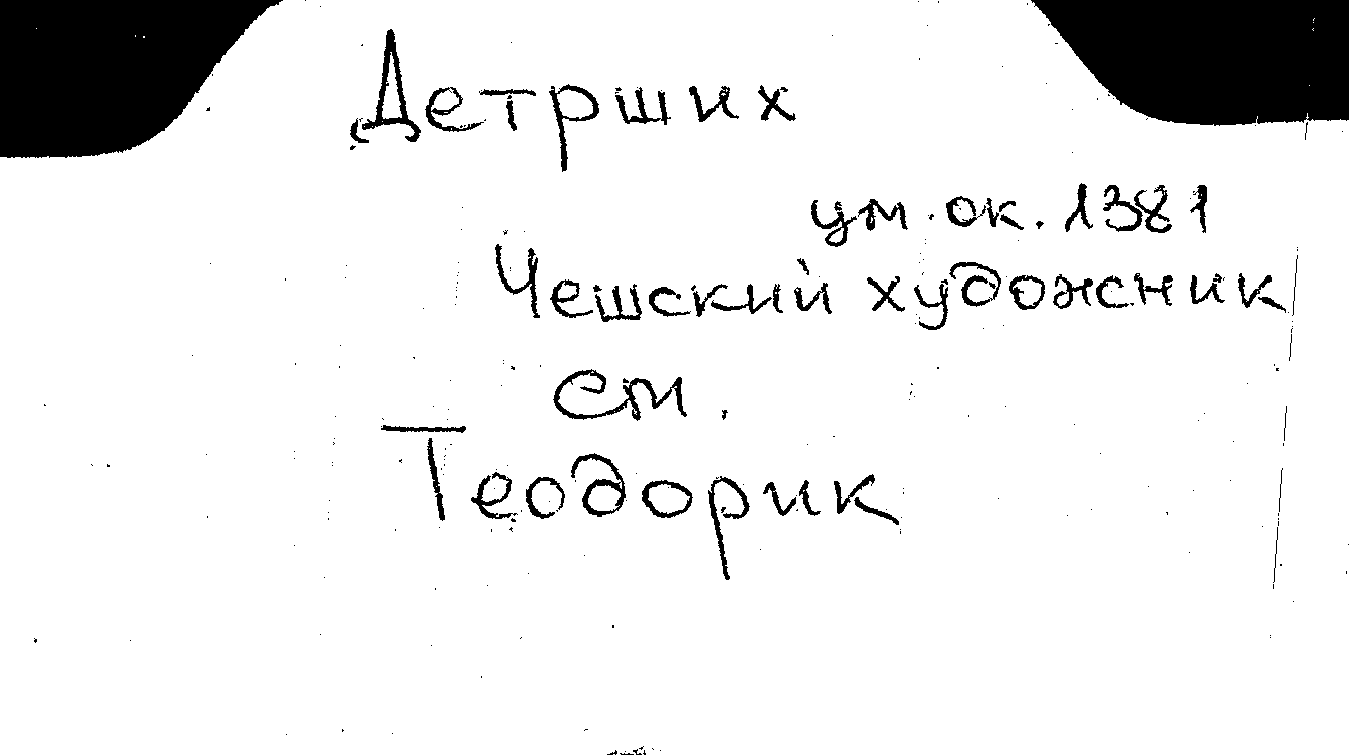 Детрших
ум. ок. 1381
Чешский художник
см.
Теодорик